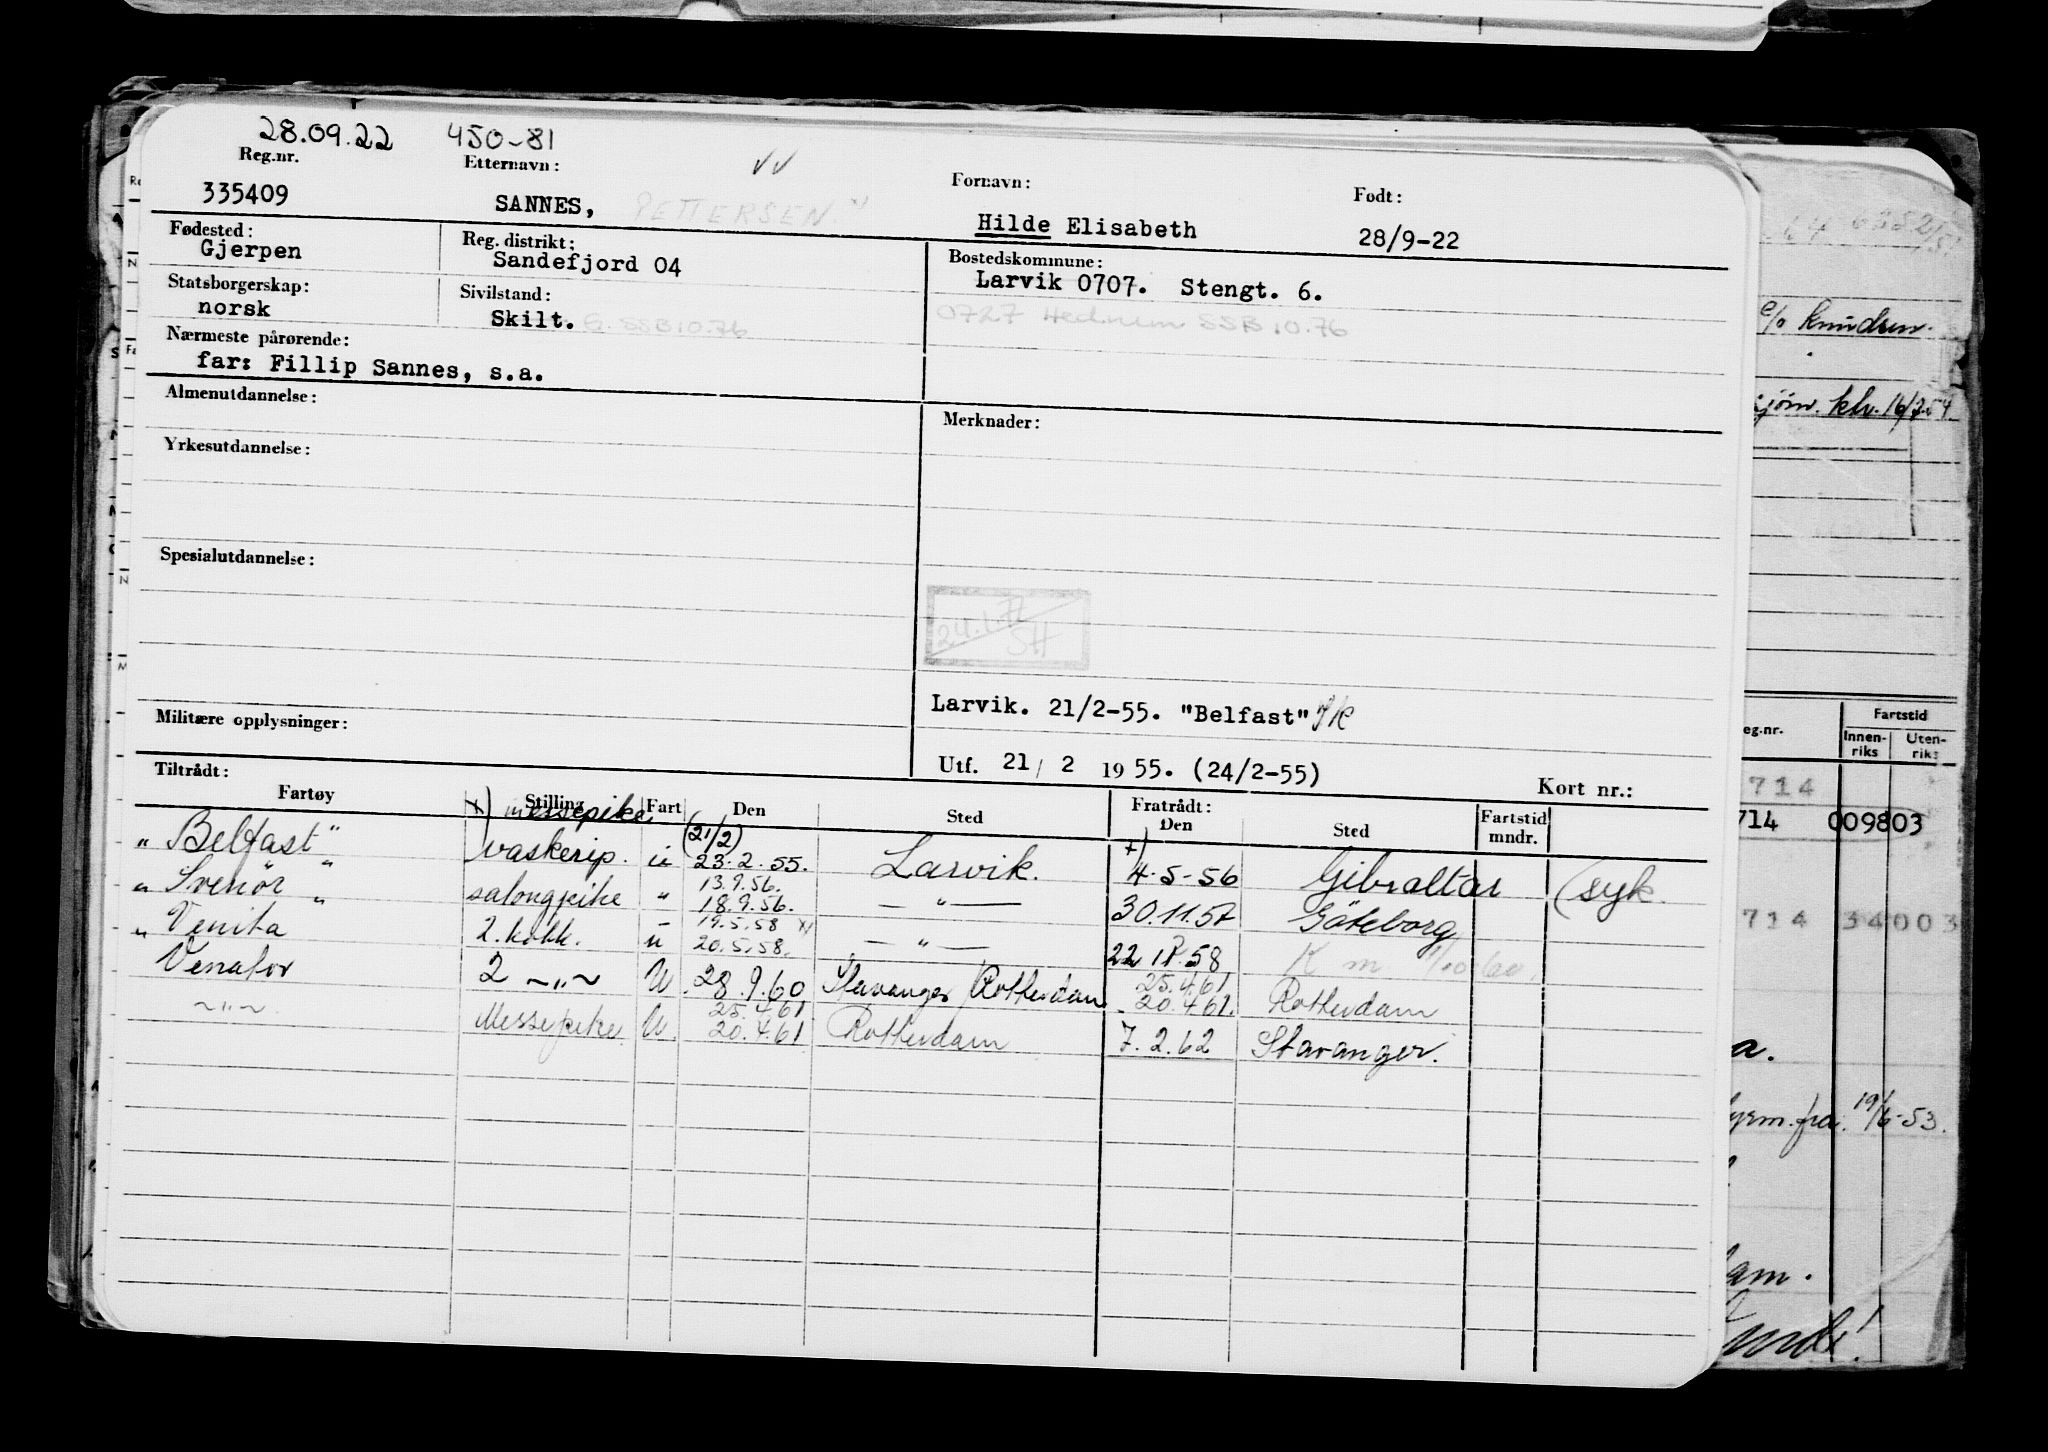 28.09.22 450-81
Reg.nr. Etternavn: Fornavn: Født:
335409 SANNES, PETTERSEN Hilde Elisabeth 28/9-22
Fødested: Reg. distrikt: Bostedskommune:
Gjerpen Sandefjord 04 Larvik 0707. Stengt. 6.
Statsborgerskap: Sivilstand:
norsk Skilt. G. SSB 10.76 0727 Hedrum SSB 10.76
Nærmeste pårørende:
far: Fillip Sannes, s.a.
Almenutdannelse: Merknader:
Yrkesutdannelse:
Spesialutdannelse:
24.1.77
SH
Larvik. 21/2-55. "Belfast"
Militære opplysninger:
Utf. 21/ 2 1955. (24/2-55) Kort nr.:
Tiltrådt: Fratrådt:
Fartøy Stilling Fart Den Sted Den Sted Fartstid mndr.
x) messepike (21/2) x)
"Belfast" vaskerip. u 23.2.55. Larvik. 4-5-56 Gibraltar (syk.
13.9.56.
"Svenør" salongpike " 18.9.56. — " — 30.11.57 Göteborg
19.5.58 x)
"Venita 2. kokk. u 20.5.58. — " — 22 58 K m. 1/10-60.
25.4.61
Venator 2 ~"~ U 28.9.60 Stavanger/Rotterdam 20.4.61. Rotterdam
25.4.61
~"~ Messepike U. 20.4.61 Rotterdam 7.2.62 Stavanger.
c/o Knudsen.
klv. 16/7-54
eg.nr. Fartstid
Innen-riks Uten-riks
714
714 009803
714 34003
a.
fra. 19/6-53.
am.